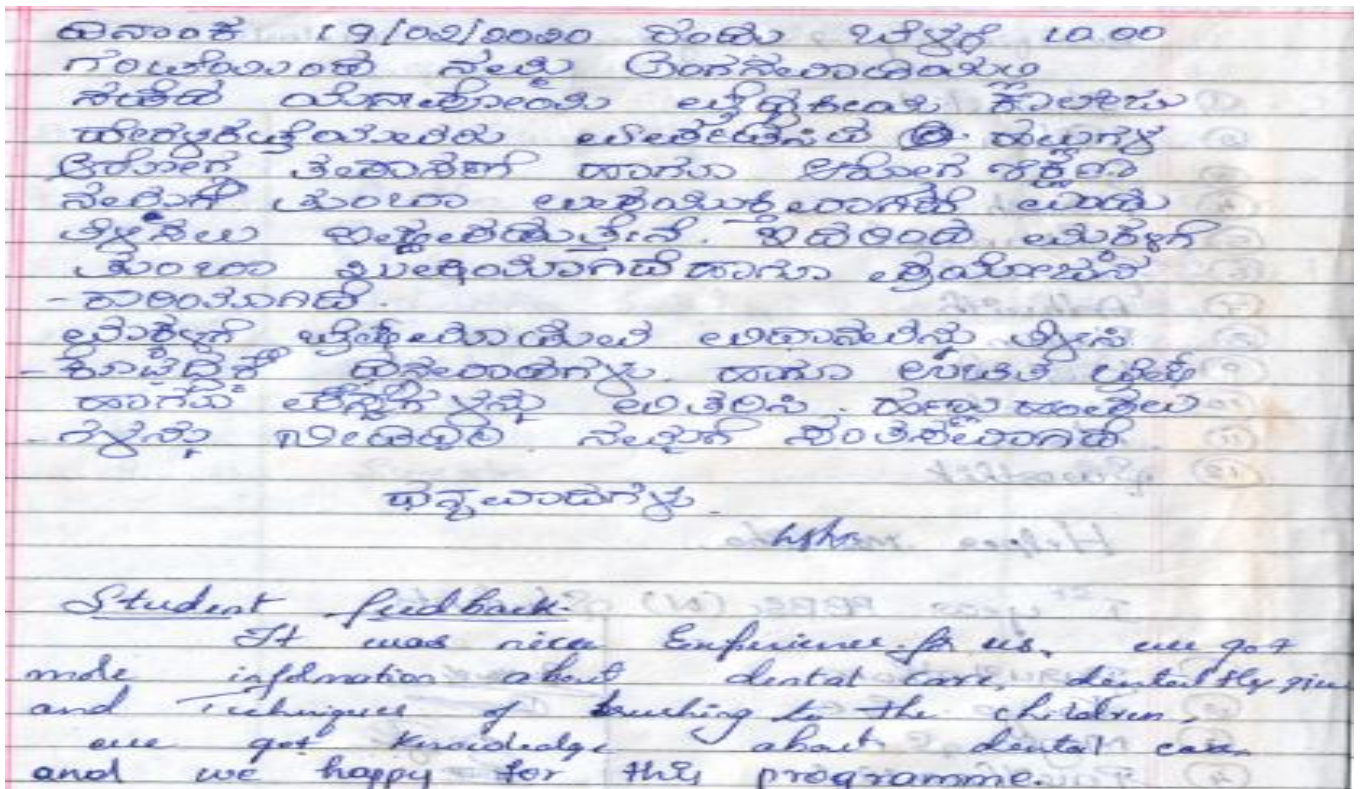 ದಿನಾಂಕ 19/02/2020 ರಂದು ಬೆಳಗ್ಗೆ 10.00
ಗಂಟೆಯಿಂದ ನಮ್ಮ ಅಂಗನವಾಡಿಯಲ್ಲಿ
ನಡೆದ
ಹಲ್ಲುಗಳ
ಆರೋಗ್ಯ ತಪಾಸಣೆ ಹಾಗೂ ಆರೋಗ್ಯ ಶಿಕ್ಷಣ
ನಮಗೆ ತುಂಬಾ ಎಂದು
ತಿಳಿಸಲು ಇಷ್ಟಪಡುತ್ತೇನೆ. ಇದರಿಂದ ಮಕ್ಕಳಿಗೆ
ತುಂಬಾ ಖುಷಿಯಾಗಿದೆ ಹಾಗೂ ಪ್ರಯೋಜನ
-ಕಾರಿಯಾಗಿದೆ.
ಮಕ್ಕಳಿಗೆ ಬ್ರಷ್ ಮಾಡುವ ವಿಧಾನವನ್ನು ತಿಳಿಸಿ
-ಕೊಟ್ಟಿದ್ದಕ್ಕೆ ಧನ್ಯವಾದಗಳು. ಹಾಗೂ ಉಚಿತ ಬ್ರಷ್
ಹಾಗೂ ವಿತರಿಸಿ. ಹಣ್ಣು ಹಂಪಲು
-ಗಳನ್ನು ನೀಡಿದ್ದು ನಮಗೆ ಸಂತಸವಾಗಿದೆ.
ಧನ್ಯವಾದಗಳು.
Usha
Student feedback.
It was nice Experience for us. we got
more information about dental care, dental Hygine
and Techniques of brushing to the children.
we got knowledge about dental care
and we happy for this programme.